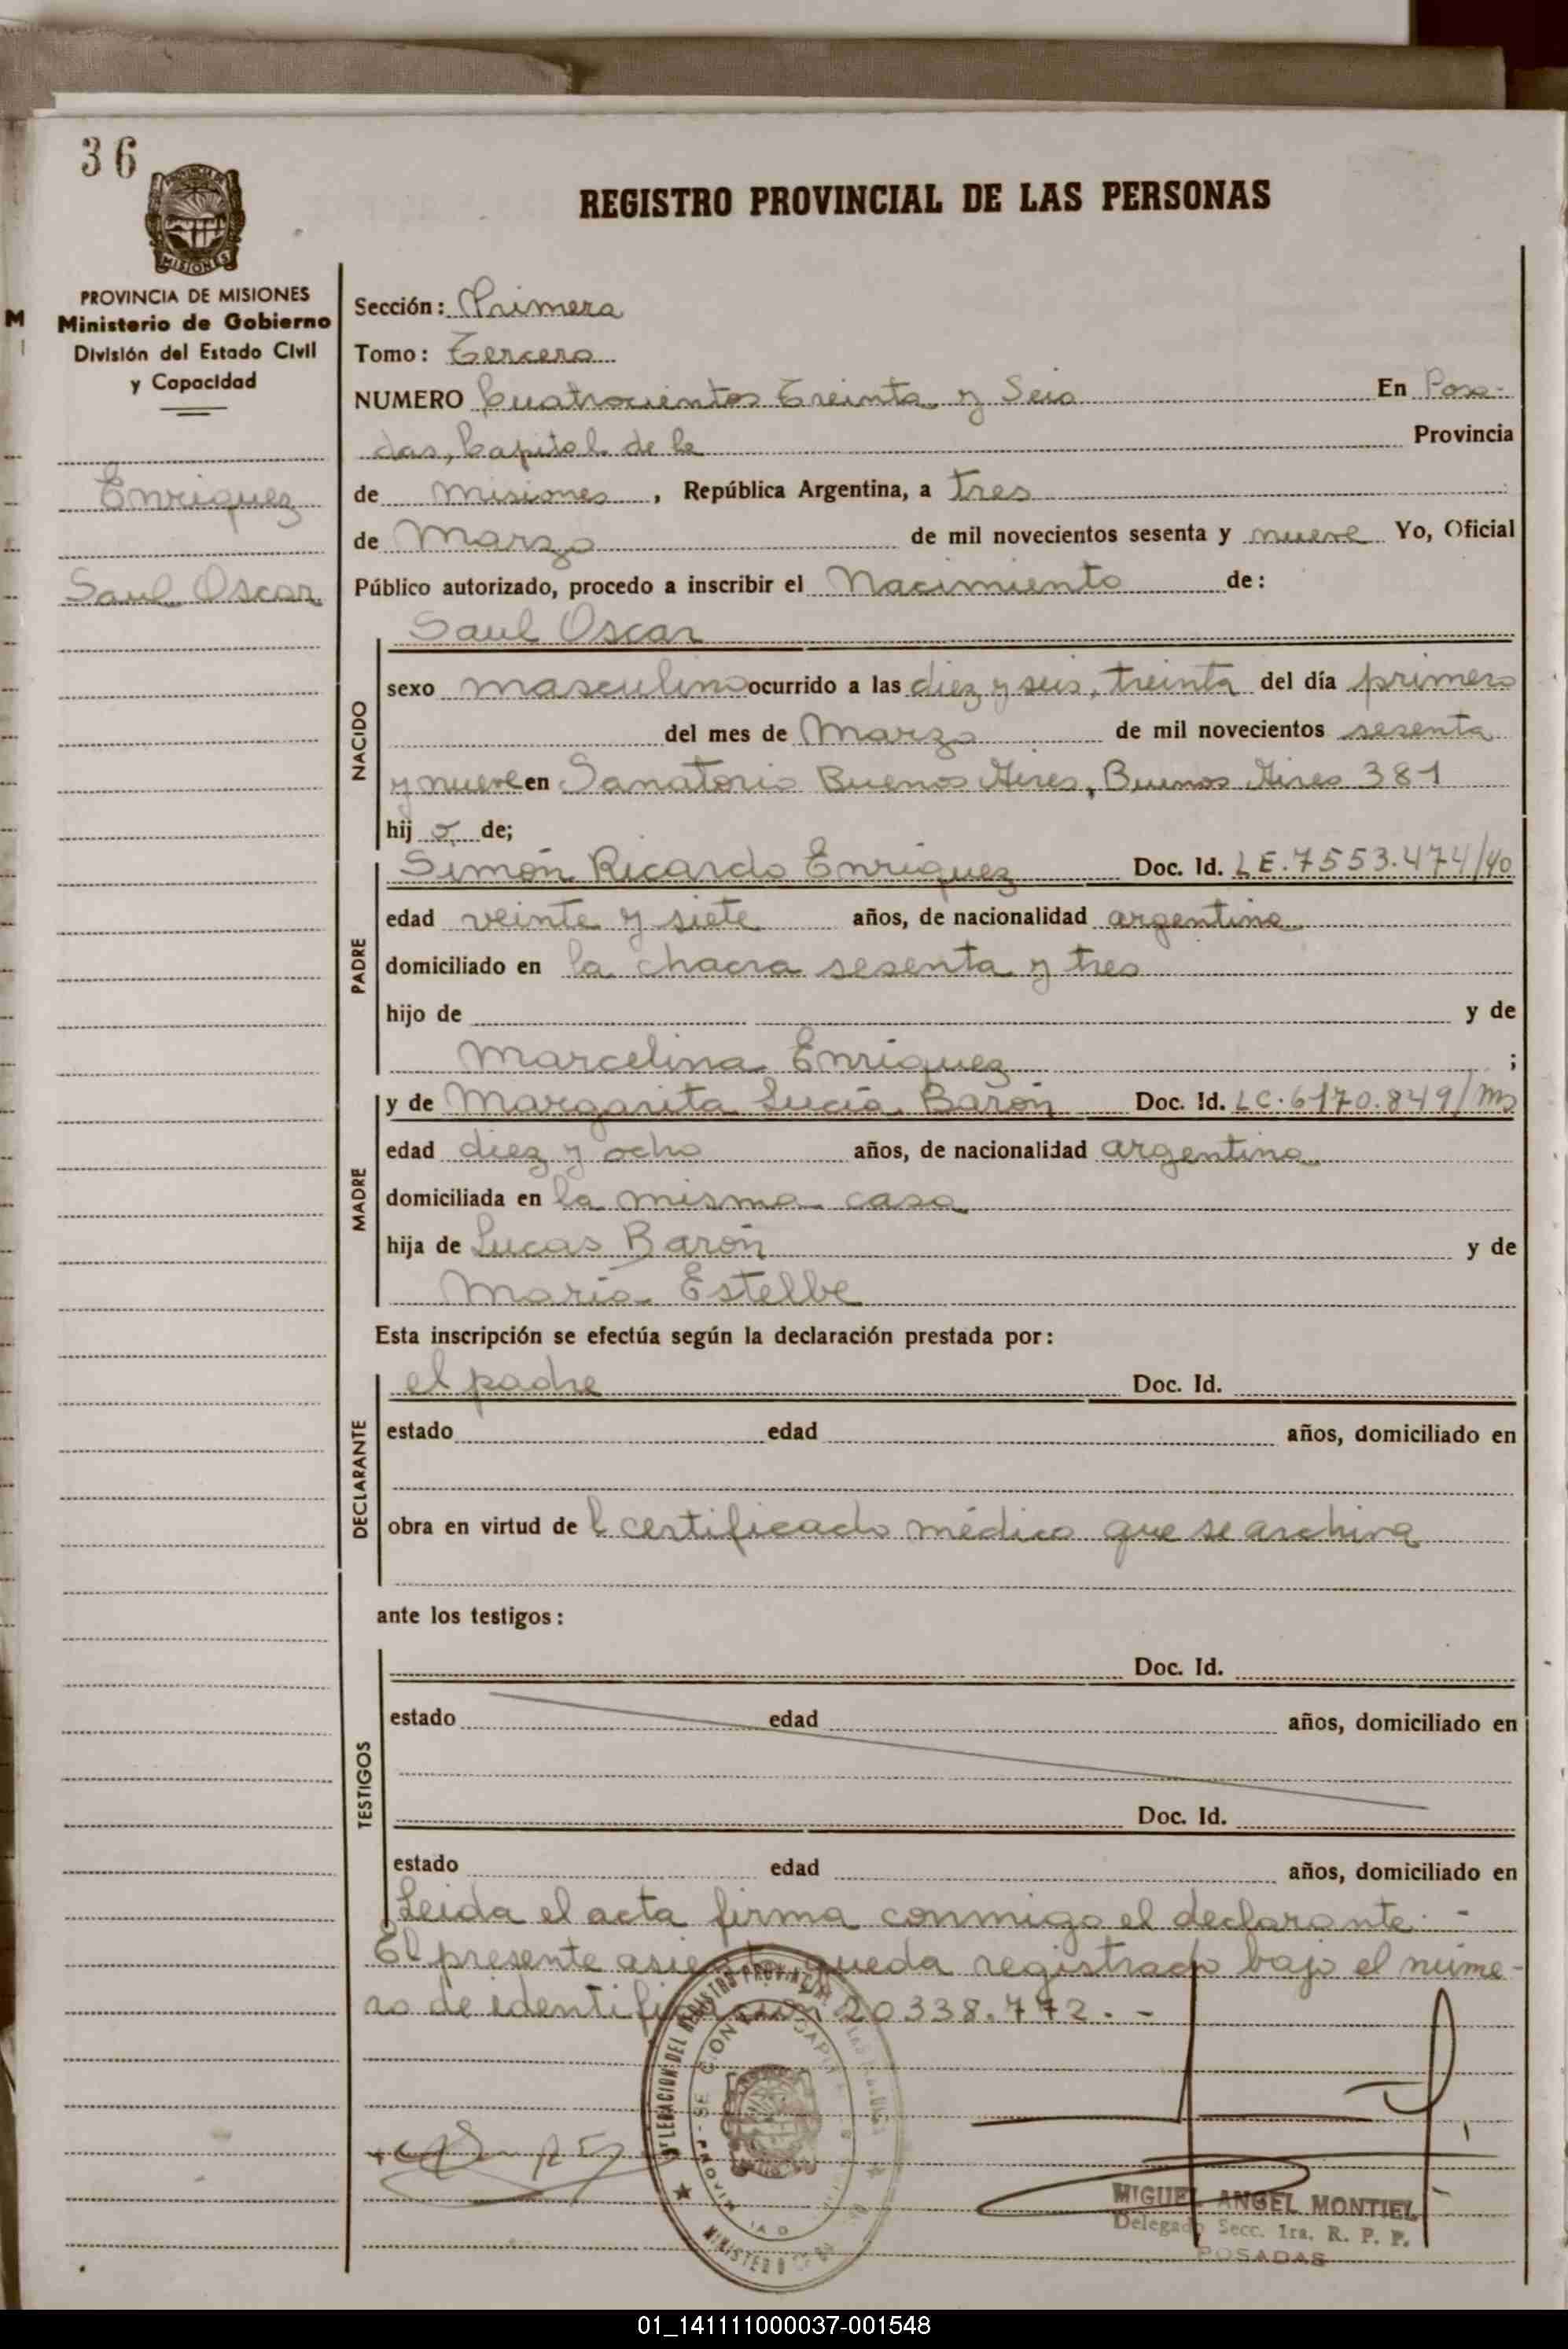 36
REGISTRO PROVINCIAL DE LAS PERSONAS
MISIONES
PROVINCIA DE MISIONES
Ministerio de Gobierno
División del Estado Civil
y Capacidad
M
Enriquez
Saul Oscar
Sección: Primera
Tomo: Tercero
NUMERO Cuatrocientos Treinta y Seis En Posa-
das, Capital de la Provincia
de Misiones, República Argentina, a tres
de Marzo de mil novecientos sesenta y nueve Yo, Oficial
Público autorizado, procedo a inscribir el Nacimiento de:
Saul Oscar
NACIDO
sexo masculino ocurrido a las diez y seis, treinta del día primero
del mes de Marzo de mil novecientos sesenta
y nueve en Sanatorio Buenos Aires, Buenos Aires 381
hij o de;
PADRE
Simón Ricardo Enriquez Doc. Id. LE.7553.474/40
edad veinte y siete años, de nacionalidad argentina
domiciliado en la chacra sesenta y tres
hijo de y de
Marcelina Enriquez ;
MADRE
y de Margarita Lucía Barón Doc. Id. LC.6170.849/Ms
edad diez y ocho años, de nacionalidad argentina
domiciliada en la misma casa
hija de Lucas Barón y de
María Estelbe
Esta inscripción se efectúa según la declaración prestada por:
DECLARANTE
el padre Doc. Id.
estado edad años, domiciliado en
obra en virtud de l certificado médico que se archiva
ante los testigos:
TESTIGOS
Doc. Id.
estado edad años, domiciliado en
Doc. Id.
estado edad años, domiciliado en
Leida el acta firma conmigo el declarante.-
El presente asiento queda registrado bajo el núme-
ro de identificación 20338.772.-
DELEGACION DEL REGISTRO PROVINCIAL
MIGUEL ANGEL MONTIEL
Delegado Secc. 1ra. R. P. P.
POSADAS
01_141111000037-001548